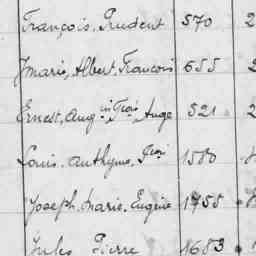 François, Prudent 570 2
Jmarie, Albert, François 655 2
Ernest, Aug in Fçois Ange 521 2
Louis, Anthyme, Fçois 1580
Joseph, Marie, Eugène 1758
Jules Pierre 1683